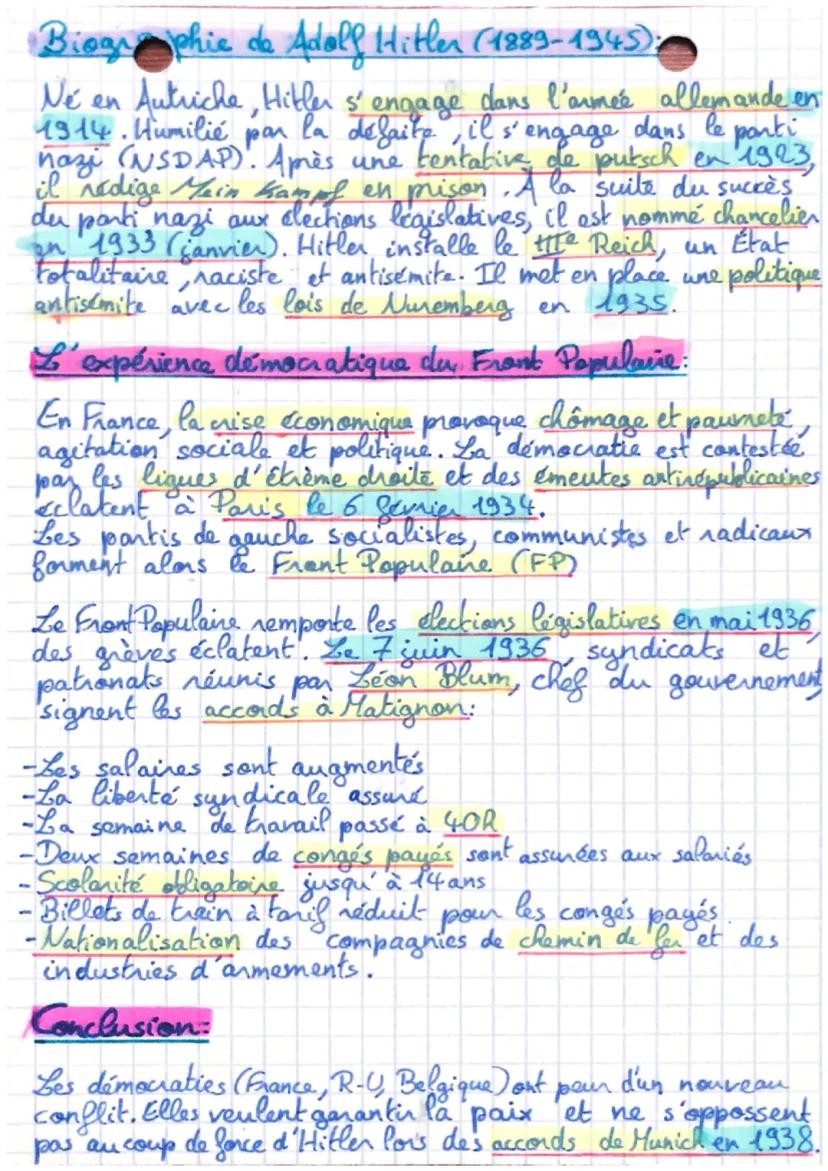 Biographie de Adolf Hitler (1889-1945):
Né en Autriche, Hitler s'engage dans l'armée allemande en
1914. Humilié par la défaite, il s'engage dans le parti
nazi (NSDAP). Après une tentative de putsch en 1923,
il rédige Mein Kampf en prison. À la suite du succès
du parti nazi aux élections législatives, il est nommé chancelier
en 1933 (janvier). Hitler installe le IIIe Reich, un État
totalitaire, raciste et antisémite. Il met en place une politique
antisémite avec les lois de Nuremberg en 1935.
L'expérience démocratique du Front Populaire:
En France, la crise économique provoque chômage et pauvreté,
agitation sociale et politique. La démocratie est contestée
par les ligues d'étrème droite et des émeutes antirépublicaines
éclatent à Paris le 6 février 1934.
Les partis de gauche socialistes, communistes et radicaux
forment alors le Front Populaire (FP)
Le Front Populaire remporte les élections législatives en mai 1936,
des grèves éclatent. Le 7 juin 1936, syndicats et
patronats réunis par Léon Blum, chef du gouvernement
signent les accords à Matignon:
-Les salaires sont augmentés
-La liberté syndicale assuré
-La semaine de travail passé à 40h
-Deux semaines de congés payés sont assurées aux salariés
-Scolarité obligatoire jusqu'à 14 ans
-Billets de train à tarif réduit pour les congés payés.
-Nationalisation des compagnies de chemin de fer et des
industries d'armements.
Conclusion:
Les démocraties (France, R-U, Belgique) ont peur d'un nouveau
conflit. Elles veulent garantir la paix et ne s'oppossent
pas au coup de force d'Hitler lors des accords de Munich en 1938.